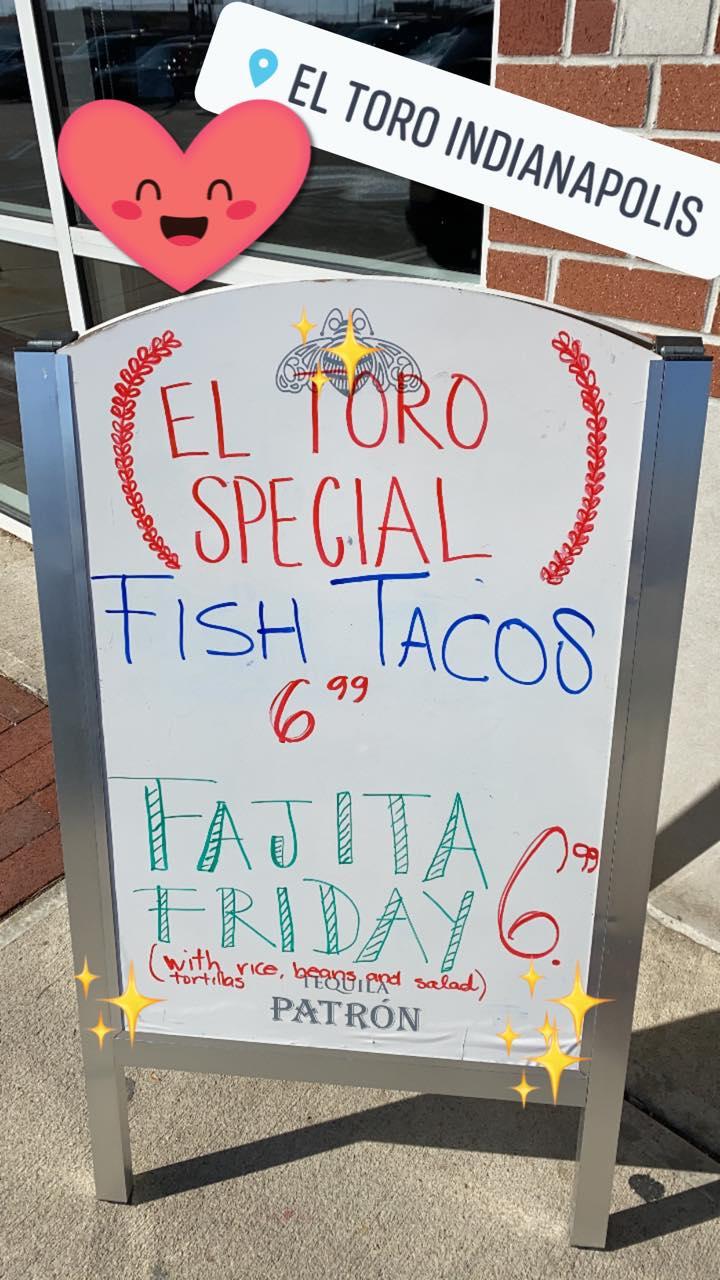 EL TORO INDIANAPOLIS
EL TORO
SPECIAL
FISH TACOS
6.99
FAJITA
FRIDAY 6.99
(with rice, beans and salad)
tortillas
TEQUILA
PATRÓN